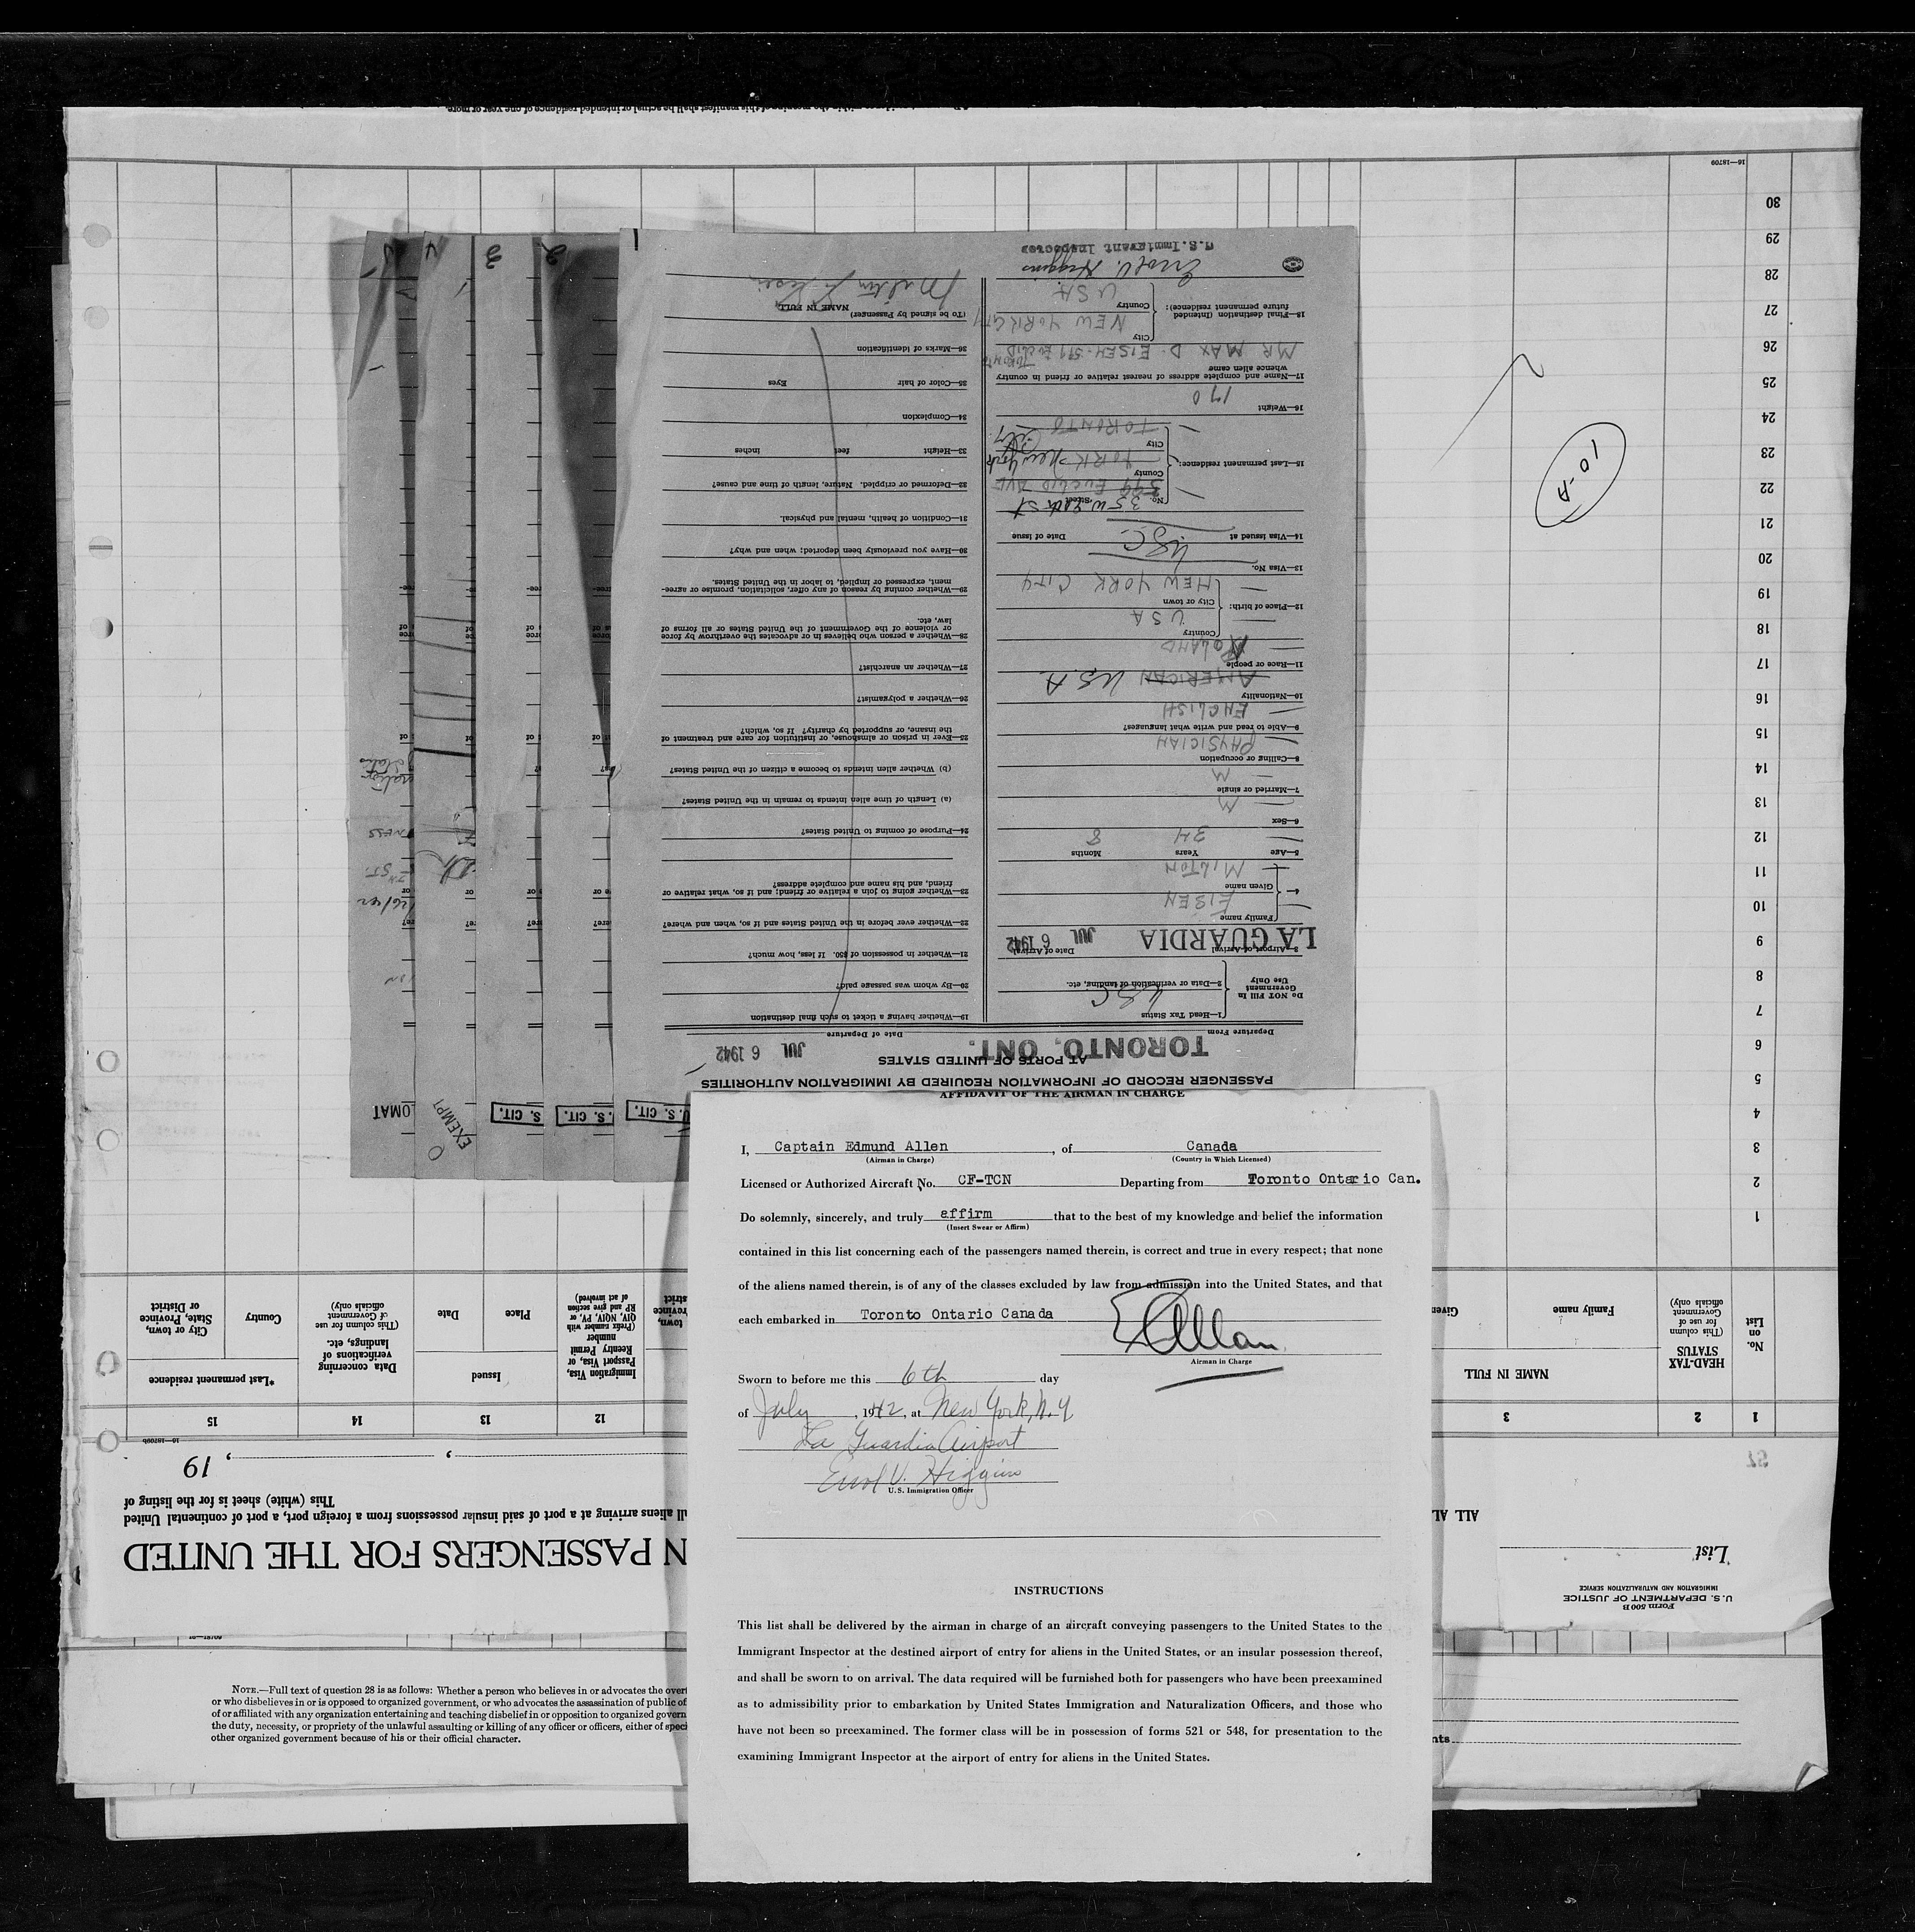 AFFIDAVIT OF THE AIRMAN IN CHARGE
I, Captain Edmund Allen, of Canada
(Airman in Charge) (Country in Which Licensed)
Licensed or Authorized Aircraft No. CF-TCN Departing from Toronto Ontario Can.
Do solemnly, sincerely, and truly affirm that to the best of my knowledge and belief the information
(Insert Swear or Affirm)
contained in this list concerning each of the passengers named therein, is correct and true in every respect; that none
of the aliens named therein, is of any of the classes excluded by law from admission into the United States, and that
each embarked in Toronto Ontario Canada
Airman in Charge
Sworn to before me this 6th day
of July, 1942, at New York, N.Y
La Guardia Airport
Errol V. Higgins
U.S. Immigration Officer
INSTRUCTIONS
This list shall be delivered by the airman in charge of an aircraft conveying passengers to the United States to the
Immigrant Inspector at the destined airport of entry for aliens in the United States, or an insular possession thereof,
and shall be sworn to on arrival. The data required will be furnished both for passengers who have been preexamined
as to admissibility prior to embarkation by United States Immigration and Naturalization Officers, and those who
have not been so preexamined. The former class will be in possession of forms 521 or 548, for presentation to the
examining Immigrant Inspector at the airport of entry for aliens in the United States.
NOTE.—Full text of question 28 is as follows: Whether a person who believes in or advocates the over
or who disbelieves in or is opposed to organized government, or who advocates the assassination of public of
of or affiliated with any organization entertaining and teaching disbelief in or opposition to organized govern
the duty, necessity, or propriety of the unlawful assaulting or killing of any officer or officers, either of speci
other organized government because of his or their official character.
U.S. CIT.
S. CIT.
S. CIT.
EXEMPT
LOMAT
PASSENGER RECORD OF INFORMATION REQUIRED BY IMMIGRATION AUTHORITIES
AT PORTS OF UNITED STATES
TORONTO, ONT. JUL 6 1942
Departure From Date of Departure
Do NOT Fill In
Government
Use Only
1—Head Tax Status
2—Data or verification of landing, etc. USC
3—Airport of Arrival LA GUARDIA Date of Arrival JUL 6 1942
4— Family name EISEN
Given name MILTON
5—Age Years 34 Months 8
6—Sex M
7—Married or single M
8—Calling or occupation PHYSICIAN
9—Able to read and write what languages? ENGLISH
10—Nationality AMERICAN U.S.A.
11—Race or people POLAND
12—Place of birth: Country USA
City or town NEW YORK CITY
13—Visa No.
14—Visa issued at USC Date of issue
15—Last permanent residence: No. Street 599 EUCLID AVE
County YORK New York
City TORONTO City
16—Weight 170
17—Name and complete address of nearest relative or friend in country
whence alien came
MR MAX D. EISEN - 599 EUCLID TORONTO
18—Final destination (Intended
future permanent residence): City NEW YORK CITY
Country USA
Errol V. Higgins
U.S. Immigrant Inspector
19—Whether having a ticket to such final destination
20—By whom was passage paid?
21—Whether in possession of $50. If less, how much?
22—Whether ever before in the United States and if so, when and where?
23—Whether going to join a relative or friend; and if so, what relative or
friend, and his name and complete address?
24—Purpose of coming to United States?
(a) Length of time alien intends to remain in the United States?
(b) Whether alien intends to become a citizen of the United States?
25—Ever in prison or almshouse, or institution for care and treatment of
the insane, or supported by charity? If so, which?
26—Whether a polygamist?
27—Whether an anarchist?
28—Whether a person who believes in or advocates the overthrow by force
or violence of the Government of the United States or all forms of
law, etc.
29—Whether coming by reason of any offer, solicitation, promise or agree-
ment, expressed or implied, to labor in the United States.
30—Have you previously been deported; when and why?
31—Condition of health, mental and physical.
32—Deformed or crippled. Nature, length of time and cause?
33—Height feet inches
34—Complexion
35—Color of hair Eyes
36—Marks of identification
(To be signed by Passenger) NAME IN FULL
1 2 3 4 5
Form 500 B
U. S. DEPARTMENT OF JUSTICE
IMMIGRATION AND NATURALIZATION SERVICE
List
N PASSENGERS FOR THE UNITED
ALL AL
ll aliens arriving at a port of said insular possessions from a foreign port, a port of continental United
This (white) sheet is for the listing of
, 19
16—18709b
1 2 3 12 13 14 15
No.
on
List
HEAD-TAX
STATUS
(This column
for use of
Government
officials only)
NAME IN FULL
Family name
Given
Immigration Visa,
Passport Visa, or
Reentry Permit
number
(Prefix number with
QIV, NQIV, PV, or
RP and give section
of act involved)
Issued
Place
Date
Data concerning
verifications of
landings, etc.
(This column for use
of Government
officials only)
*Last permanent residence
Country
City or town,
State, Province
or District
1
2
3
4
5
6
7
8
9
10
11
12
13
14
15
16
17
18
19
20
21
22
23
24
25
26
27
28
29
30
10-A
16—18709